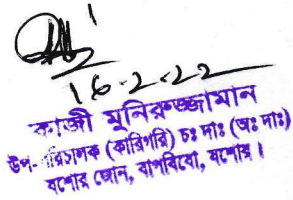 16-2-22
কাজী মুনিরুজ্জামান
উপ-পরিচালক (কারিগরি) চঃ দাঃ (অঃ দাঃ)
যশোর জোন, বাপবিবো, যশোর।